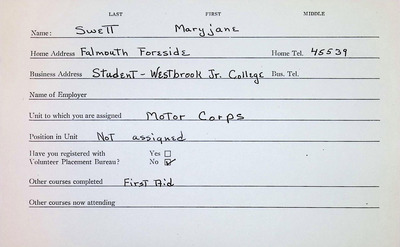 LAST FIRST MIDDLE
Name: Swett Maryjane
Home Address Falmouth Foreside Home Tel. 45539
Business Address Student - Westbrook Jr. College Bus. Tel.
Name of Employer
Unit to which you are assigned Motor Corps
Position in Unit Not assigned
Have you registered with Yes ☐
Volunteer Placement Bureau? No ☑
Other courses completed First Aid
Other courses now attending